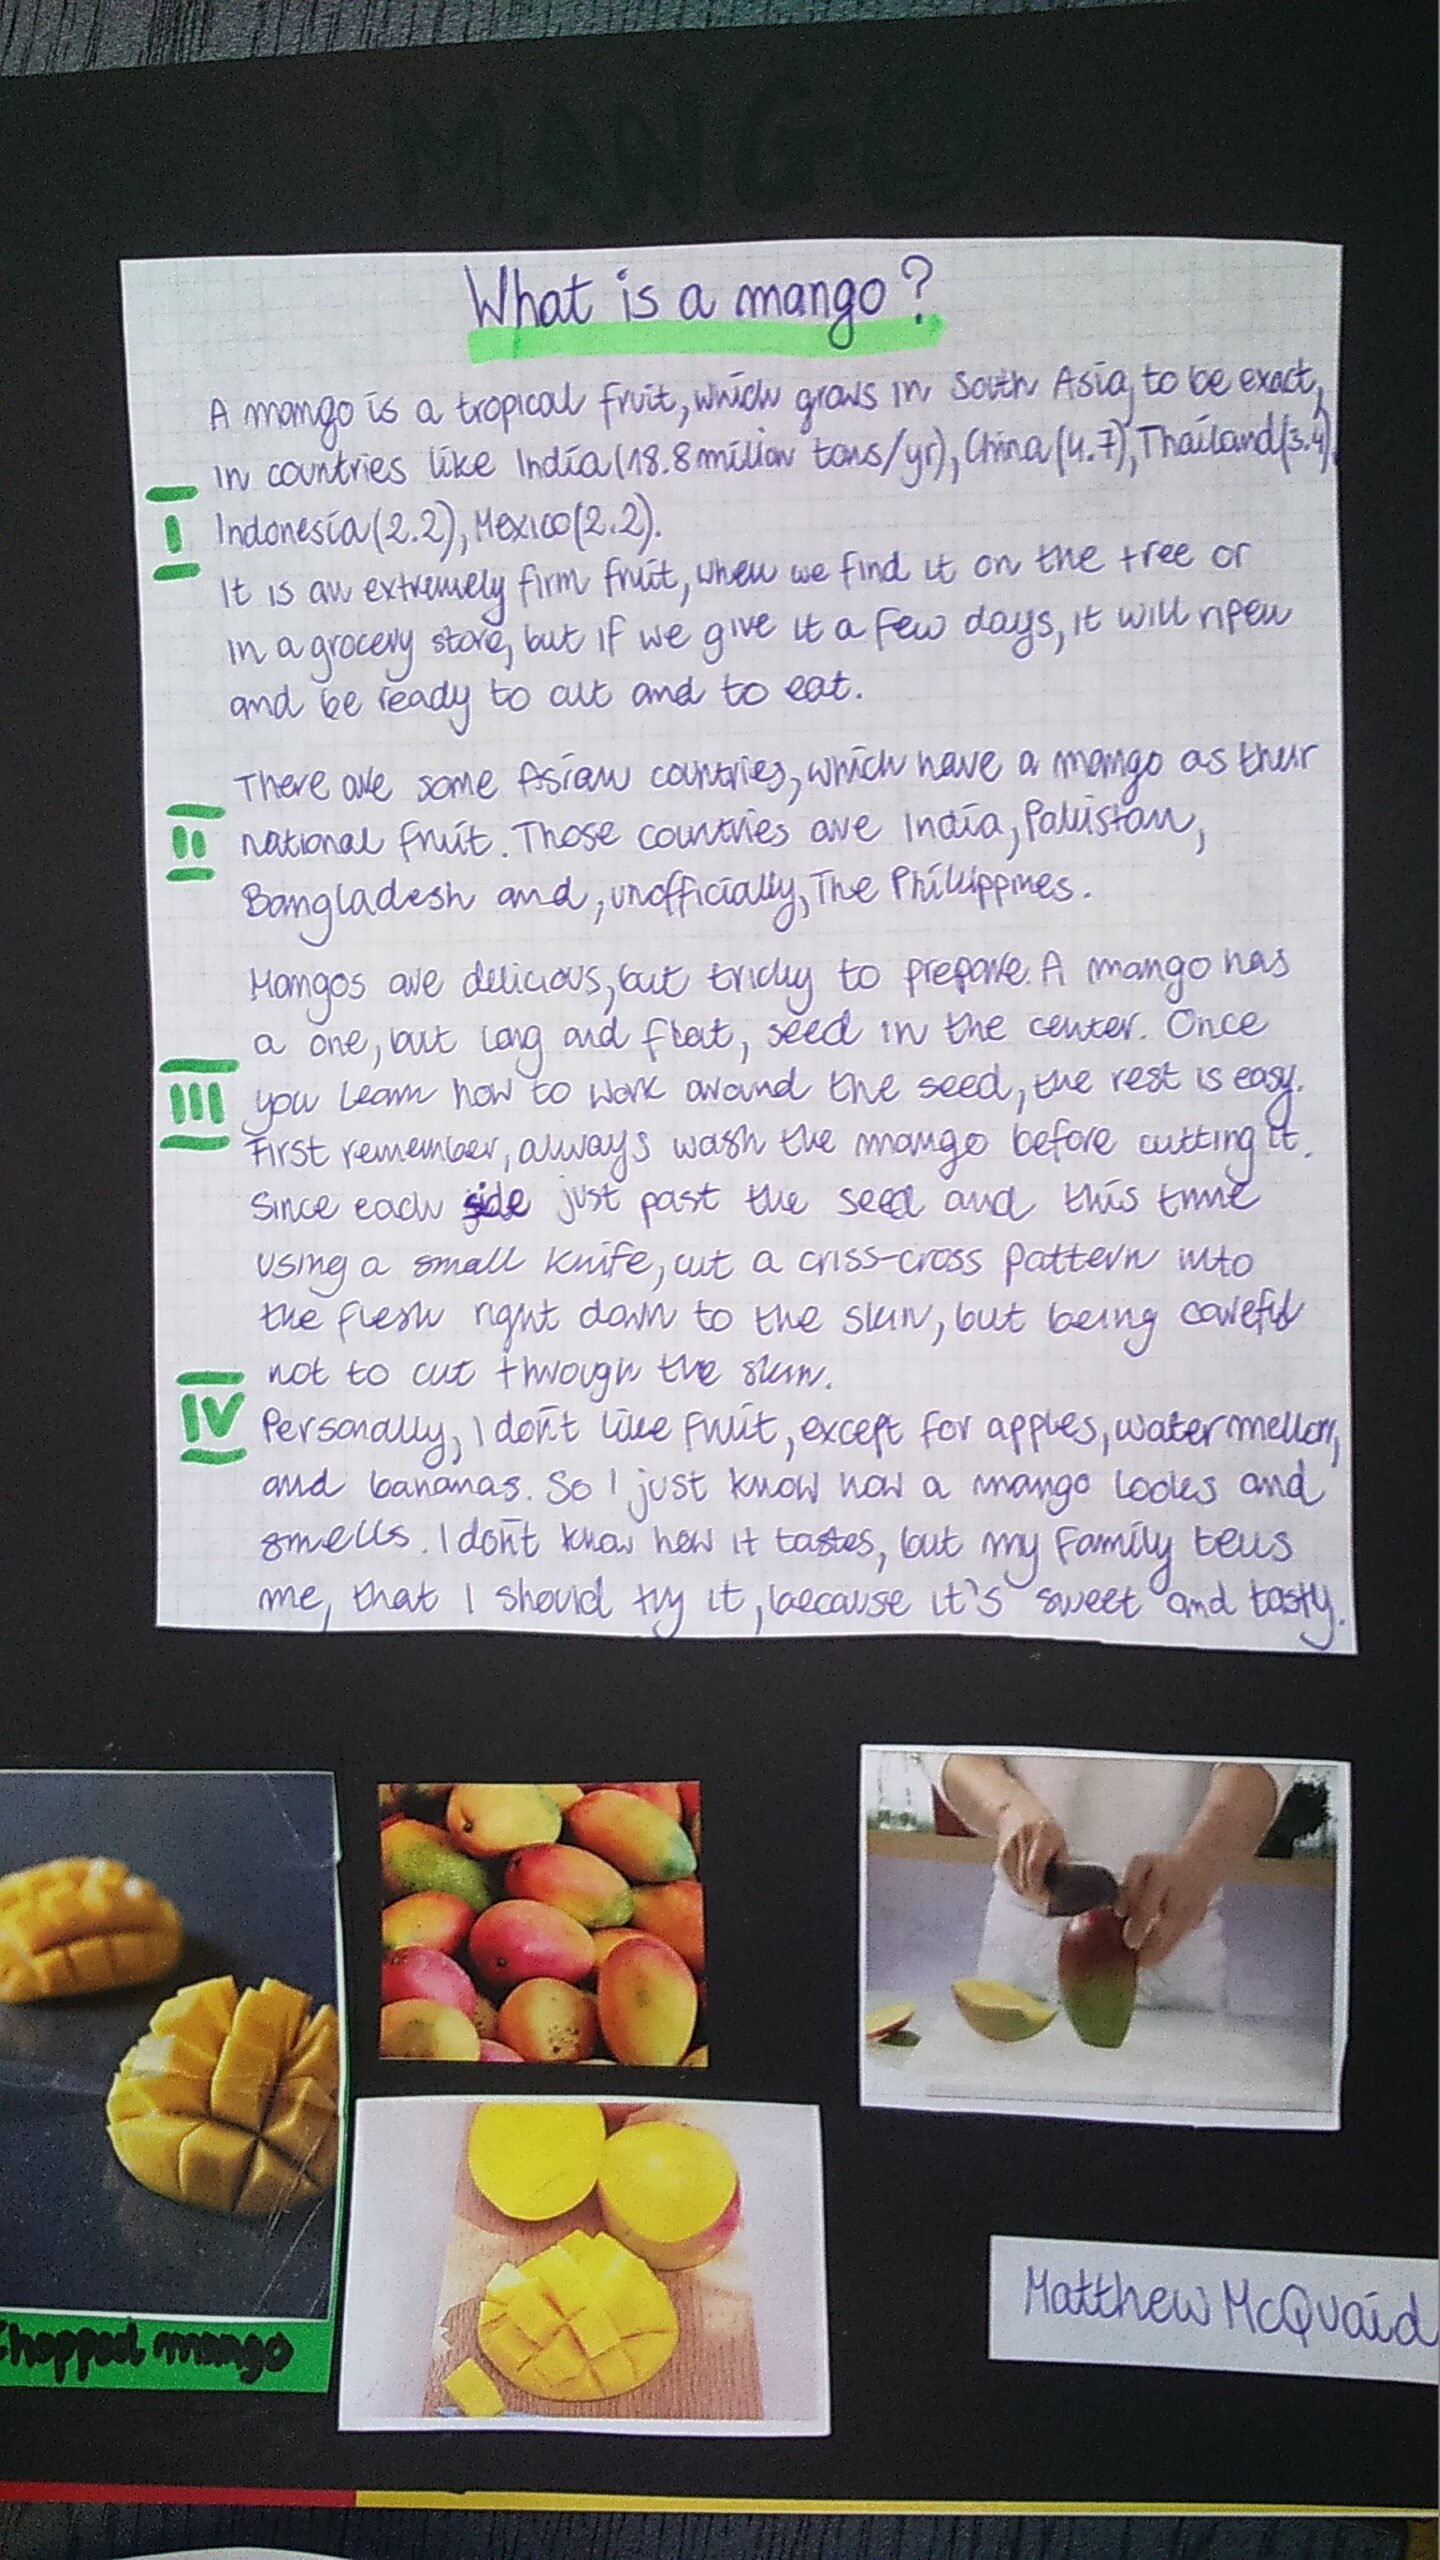 MANGO
What is a mango?
A mango is a tropical fruit, which grows in South Asia, to be exact,
in countries like India (18.8 million tons/yr), China (4.7), Thailand (3.4),
Indonesia (2.2), Mexico (2.2).
I
It is an extremely firm fruit, when we find it on the tree or
in a grocery store, but if we give it a few days, it will ripen
and be ready to cut and to eat.
There are some Asian countries, which have a mango as their
II
national fruit. Those countries are India, Pakistan,
Bangladesh and, unofficially, The Philippines.
Mangos are delicious, but tricky to prepare. A mango has
a one, but long and flat, seed in the center. Once
III
you learn how to work around the seed, the rest is easy.
First remember, always wash the mango before cutting it.
Since each side just past the seed and this time
using a small knife, cut a criss-cross pattern into
the flesh right down to the skin, but being careful
not to cut through the skin.
IV
Personally, I don't like fruit, except for apples, watermellon,
and bananas. So I just know how a mango looks and
smells. I don't know how it tastes, but my family tells
me, that I should try it, because it's sweet and tasty.
Chopped mango
Matthew McQuaid